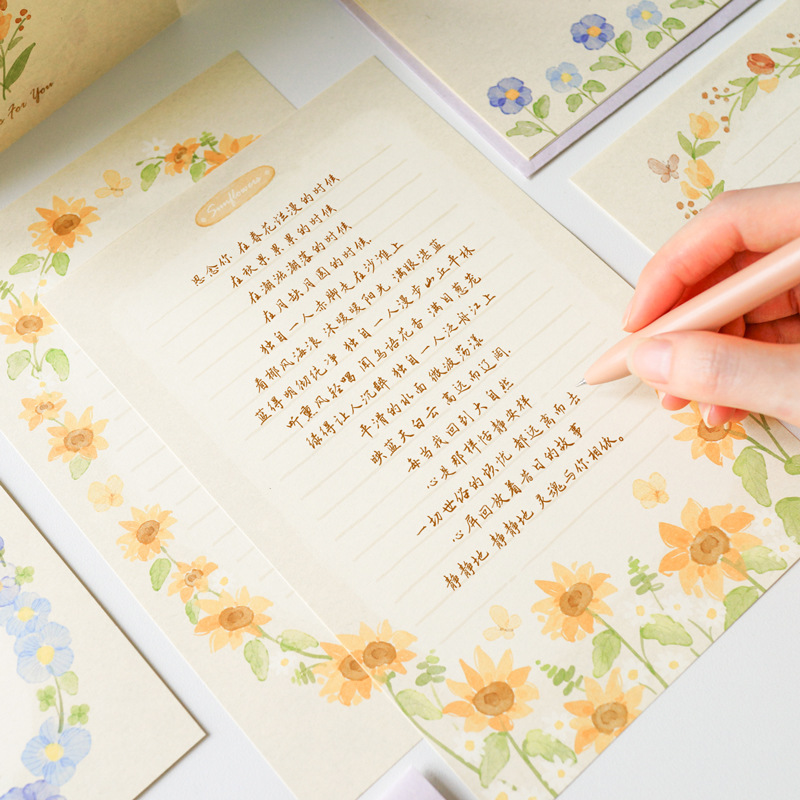 s For You
Sunflowers
思念你 在春花泣漫的时候
在秋果累累的时候
在潮涨潮落的时候
在月缺月圆的时候
独自一人赤脚走在沙滩上
看椰风海浪 沐暖暖阳光 满眼湛蓝
蓝得明彻纯净 独自一人漫步山丘平林
听熏风轻唱 闻鸟语花香 满目葱茏
绿得让人沉醉 独自一人泛舟江上
平滑的水面 微波荡漾
映蓝天白云 高远而辽阔
每当我回到大自然
心是那样恬静安祥
一切世俗的烦忧 都远离而去
心屏回放着昔日的故事
静静地 静静地 灵魂与你相依。